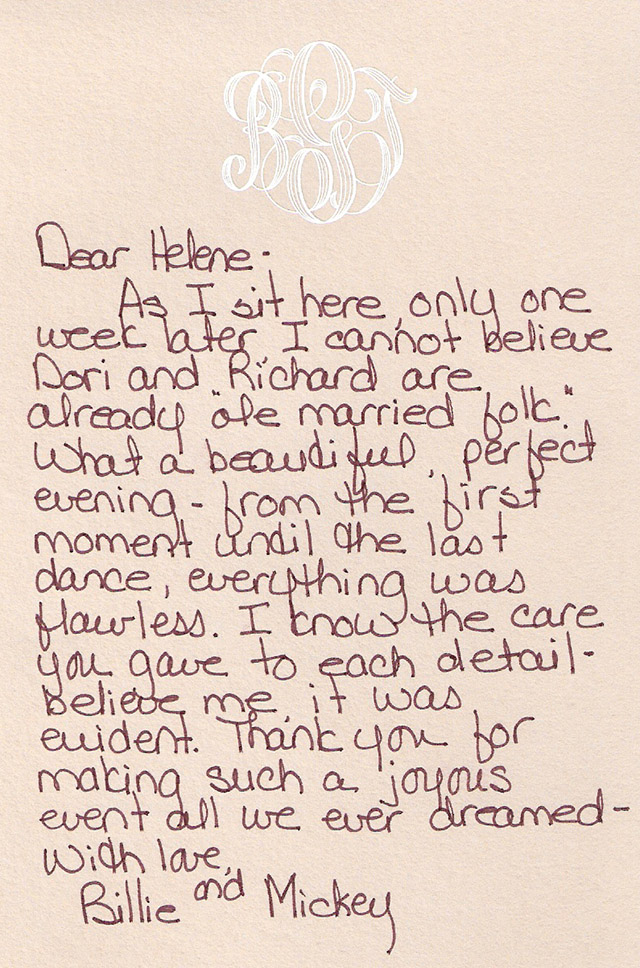 Dear Helene -
As I sit here, only one
week later I cannot believe
Dori and Richard are
already "ole married folk."
What a beautiful, perfect
evening - from the first
moment until the last
dance, everything was
flawless. I know the care
you gave to each detail -
believe me, it was
evident. Thank you for
making such a joyous
event all we ever dreamed -
With love,
Billie and Mickey